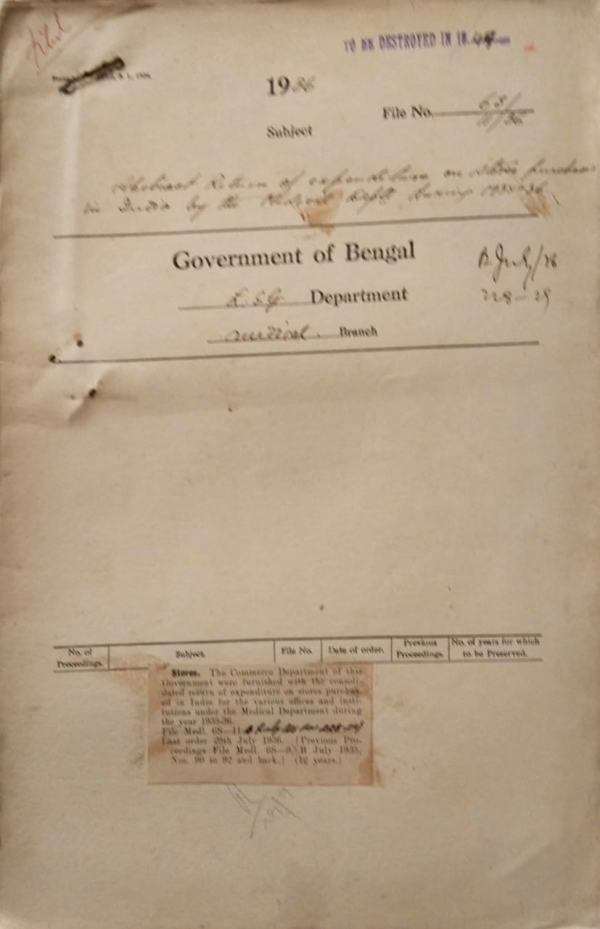 Filed
TO BE DESTROYED IN 19
1936
File No. 6S/11/36
Subject
Abstract Return of expenditure on Stores purchased
in India by the Medical Deptt during 1935-36
Government of Bengal
B. July/36
L. S. G. Department
228-29
Medical Branch
No. of Proceedings.
Subject.
File No.
Date of order.
Previous Proceedings.
No. of years for which to be Preserved.
Stores. The Commerce Department of this
Government were furnished with the consoli-
dated return of expenditure on stores purchas-
ed in India for the various offices and insti-
tutions under the Medical Department during
the year 1935-36.
File Medl. 6S—11 B July 36 Nos 228-29
Last order 29th July 1936. [Previous Pro-
ceedings File Medl. 6S—9, B July 1935,
Nos. 90 to 92 and back.] (12 years.)